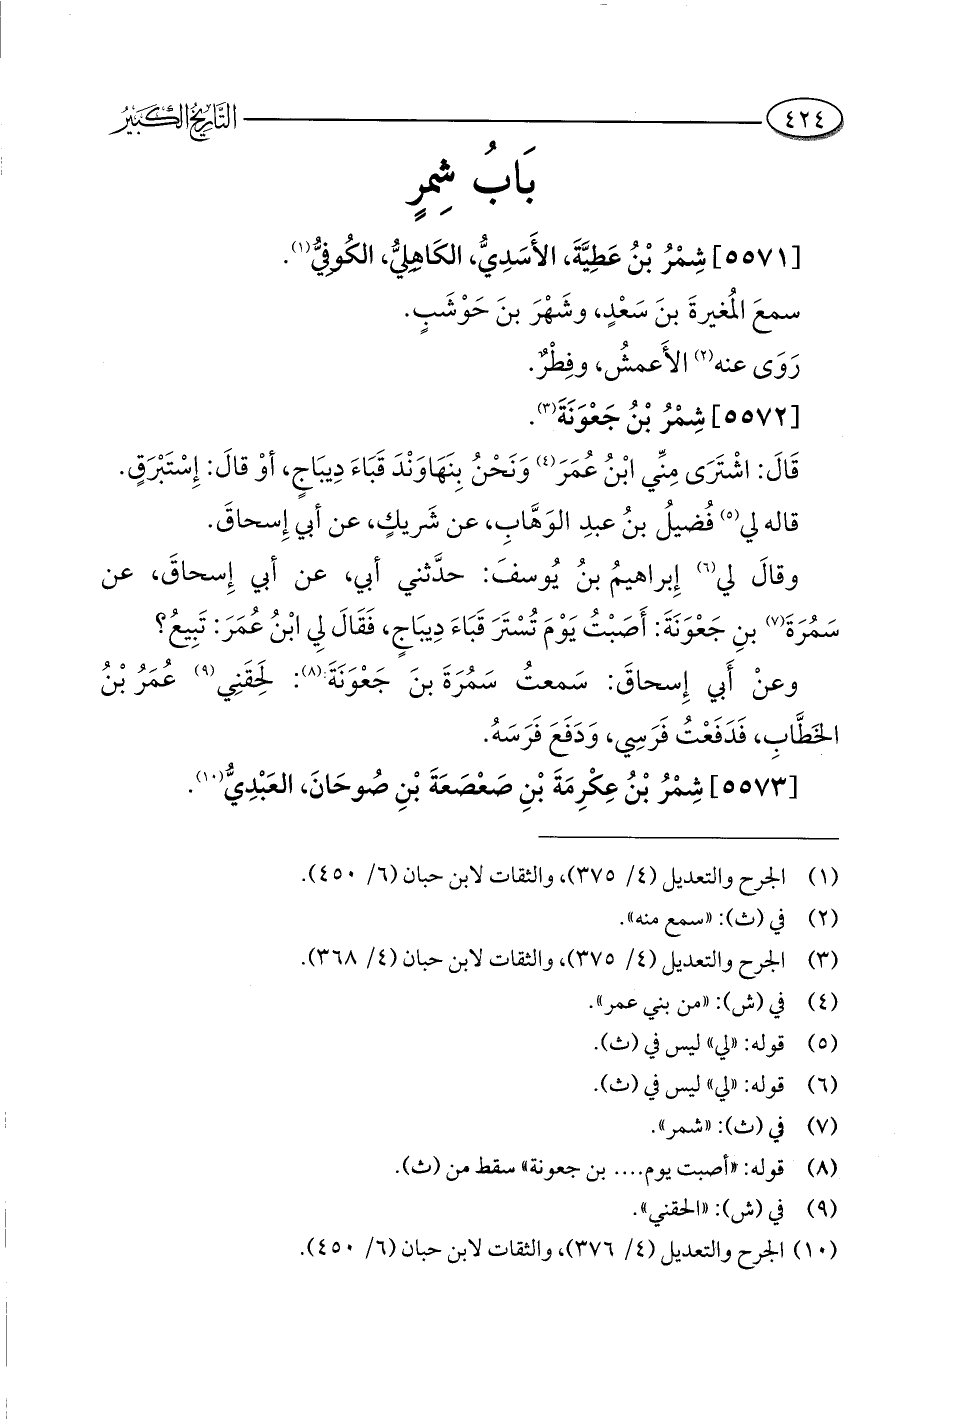 ٤٢٤ التَّارِيخُ الكَبِيرُ
بَابُ شِمِرٍ
[٥٥٧١] شِمْرُ بْنُ عَطِيَّةَ، الأَسَدِيُّ، الكَاهِلِيُّ، الكُوفِيُّ(١).
سمعَ المُغيرةَ بنَ سَعْدٍ، وشَهْرَ بنَ حَوْشَبٍ.
رَوَى عنه(٢) الأَعمشُ، وفِطْرٌ.
[٥٥٧٢] شِمْرُ بْنُ جَعْوَنَةَ(٣).
قَالَ: اشْتَرَى مِنِّي ابْنُ عُمَرَ(٤) وَنَحْنُ بِنَهَاوَنْدَ قَبَاءَ دِيبَاجٍ، أوْ قالَ: إِسْتَبْرَقٍ.
قاله لي(٥) فُضيلُ بنُ عبدِ الوَهَّابِ، عن شَريكٍ، عن أبي إِسحاقَ.
وقالَ لي(٦) إِبراهيمُ بنُ يُوسفَ: حدَّثني أبي، عن أبي إِسحاقَ، عن
سَمُرَةَ(٧) بنِ جَعْوَنَةَ: أَصَبْتُ يَوْمَ تُسْتَرَ قَبَاءَ دِيبَاجٍ، فَقَالَ لِي ابْنُ عُمَرَ: تَبِيعُ؟
وعنْ أَبي إِسحاقَ: سَمعتُ سَمُرَةَ بنَ جَعْوَنَةَ(٨): لَحِقَنِي(٩) عُمَرُ بْنُ
الخَطَّابِ، فَدَفَعْتُ فَرَسِي، وَدَفَعَ فَرَسَهُ.
[٥٥٧٣] شِمْرُ بْنُ عِكْرِمَةَ بْنِ صَعْصَعَةَ بْنِ صُوحَانَ، العَبْدِيُّ(١٠).
(١) الجرح والتعديل (٤/ ٣٧٥)، والثقات لابن حبان (٦/ ٤٥٠).
(٢) في (ث): «سمع منه».
(٣) الجرح والتعديل (٤/ ٣٧٥)، والثقات لابن حبان (٤/ ٣٦٨).
(٤) في (ش): «من بني عمر».
(٥) قوله: «لي» ليس في (ث).
(٦) قوله: «لي» ليس في (ث).
(٧) في (ث): «شمر».
(٨) قوله: «أصبت يوم.... بن جعونة» سقط من (ث).
(٩) في (ش): «الحقني».
(١٠) الجرح والتعديل (٤/ ٣٧٦)، والثقات لابن حبان (٦/ ٤٥٠).